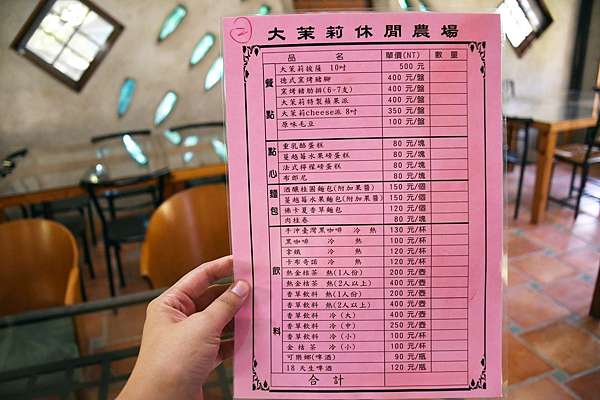 2
大茉莉休閒農場
品 名 單價(NT) 數量
餐點
大茉莉披薩 10吋 500 元
德式窯烤豬腳 400 元/盤
窯烤豬肋排(6-7支) 400 元/盤
大茉莉特製蘋果派 400 元/盤
大茉莉cheese派 8吋 350 元/盤
原味毛豆 100 元/盤
點心
重乳酪蛋糕 80 元/塊
蔓越莓水果磅蛋糕 80 元/塊
法式檸檬磅蛋糕 80 元/塊
布郎尼 80 元/塊
麵包
酒釀桂圓麵包(附加果醬) 150 元/個
蔓越莓水果麵包(附加果醬) 150 元/個
佛卡夏香草麵包 120 元/個
肉桂卷 80 元/塊
飲料
手沖臺灣黑咖啡 冷 熱 130 元/杯
黑咖啡 冷 熱 100 元/杯
拿鐵 冷 熱 120 元/杯
卡布奇諾 冷 熱 120 元/杯
熱金桔茶 熱(1人份) 200 元/壺
熱金桔茶 熱(2人以上) 400 元/壺
香草飲料 熱(1人份) 200 元/壺
香草飲料 熱(2人以上) 400 元/壺
香草飲料 冷(大) 400 元/壺
香草飲料 冷(中) 250 元/壺
香草飲料 冷(小) 100 元/杯
金桔 茶 冷(小) 100 元/杯
可樂娜(啤酒) 90 元/瓶
18 天生啤酒 120 元/瓶
合 計